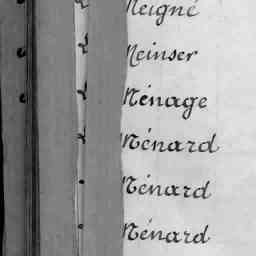 Meigné
Meinser
Ménage
Ménard
Ménard
Ménard